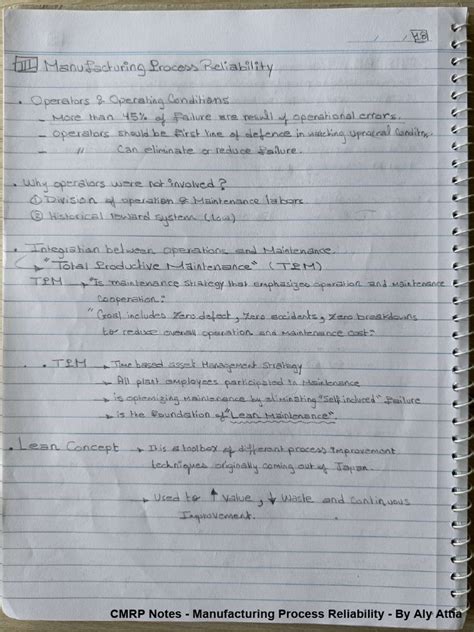 48
III Manufacturing Process Reliability
• Operators & Operating Conditions
– More than 45% of failure are result of operational errors.
– Operators should be first line of defence in watching upnormal conditions.
– " Can eliminate or reduce failure.
• Why operators were not involved?
① Division of operation & Maintenance labors.
② Historical reward system (low)
• Integration between operations and Maintenance.
↳ "Total Productive Maintenance" (TPM)
TPM → "Is maintenance strategy that emphasizes operation and maintenance
cooperation."
"Goal includes zero defect, zero accidents, zero breakdowns
to reduce overall operation and maintenance cost."
• TPM → Time based asset Management strategy
→ All plant employees participated in Maintenance
→ is optimizing maintenance by eliminating "Self induced" failure
→ is the foundation of "Lean Maintenance".
• Lean Concept → It is a toolbox of different process improvement
techniques originally coming out of Japan.
→ Used to ↑ Value, ↓ Waste and continuous
Improvement.
CMRP Notes - Manufacturing Process Reliability - By Aly Attia